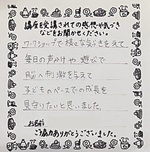 講座を受講されての感想や気づき
などをお聞かせください。
ワークショップで様々な気づきを得て
毎日の声かけや遊びで
脳への刺激を与えて
子どものペースでの成長を
見守りたいと思いました。
ご協力ありがとうございました。